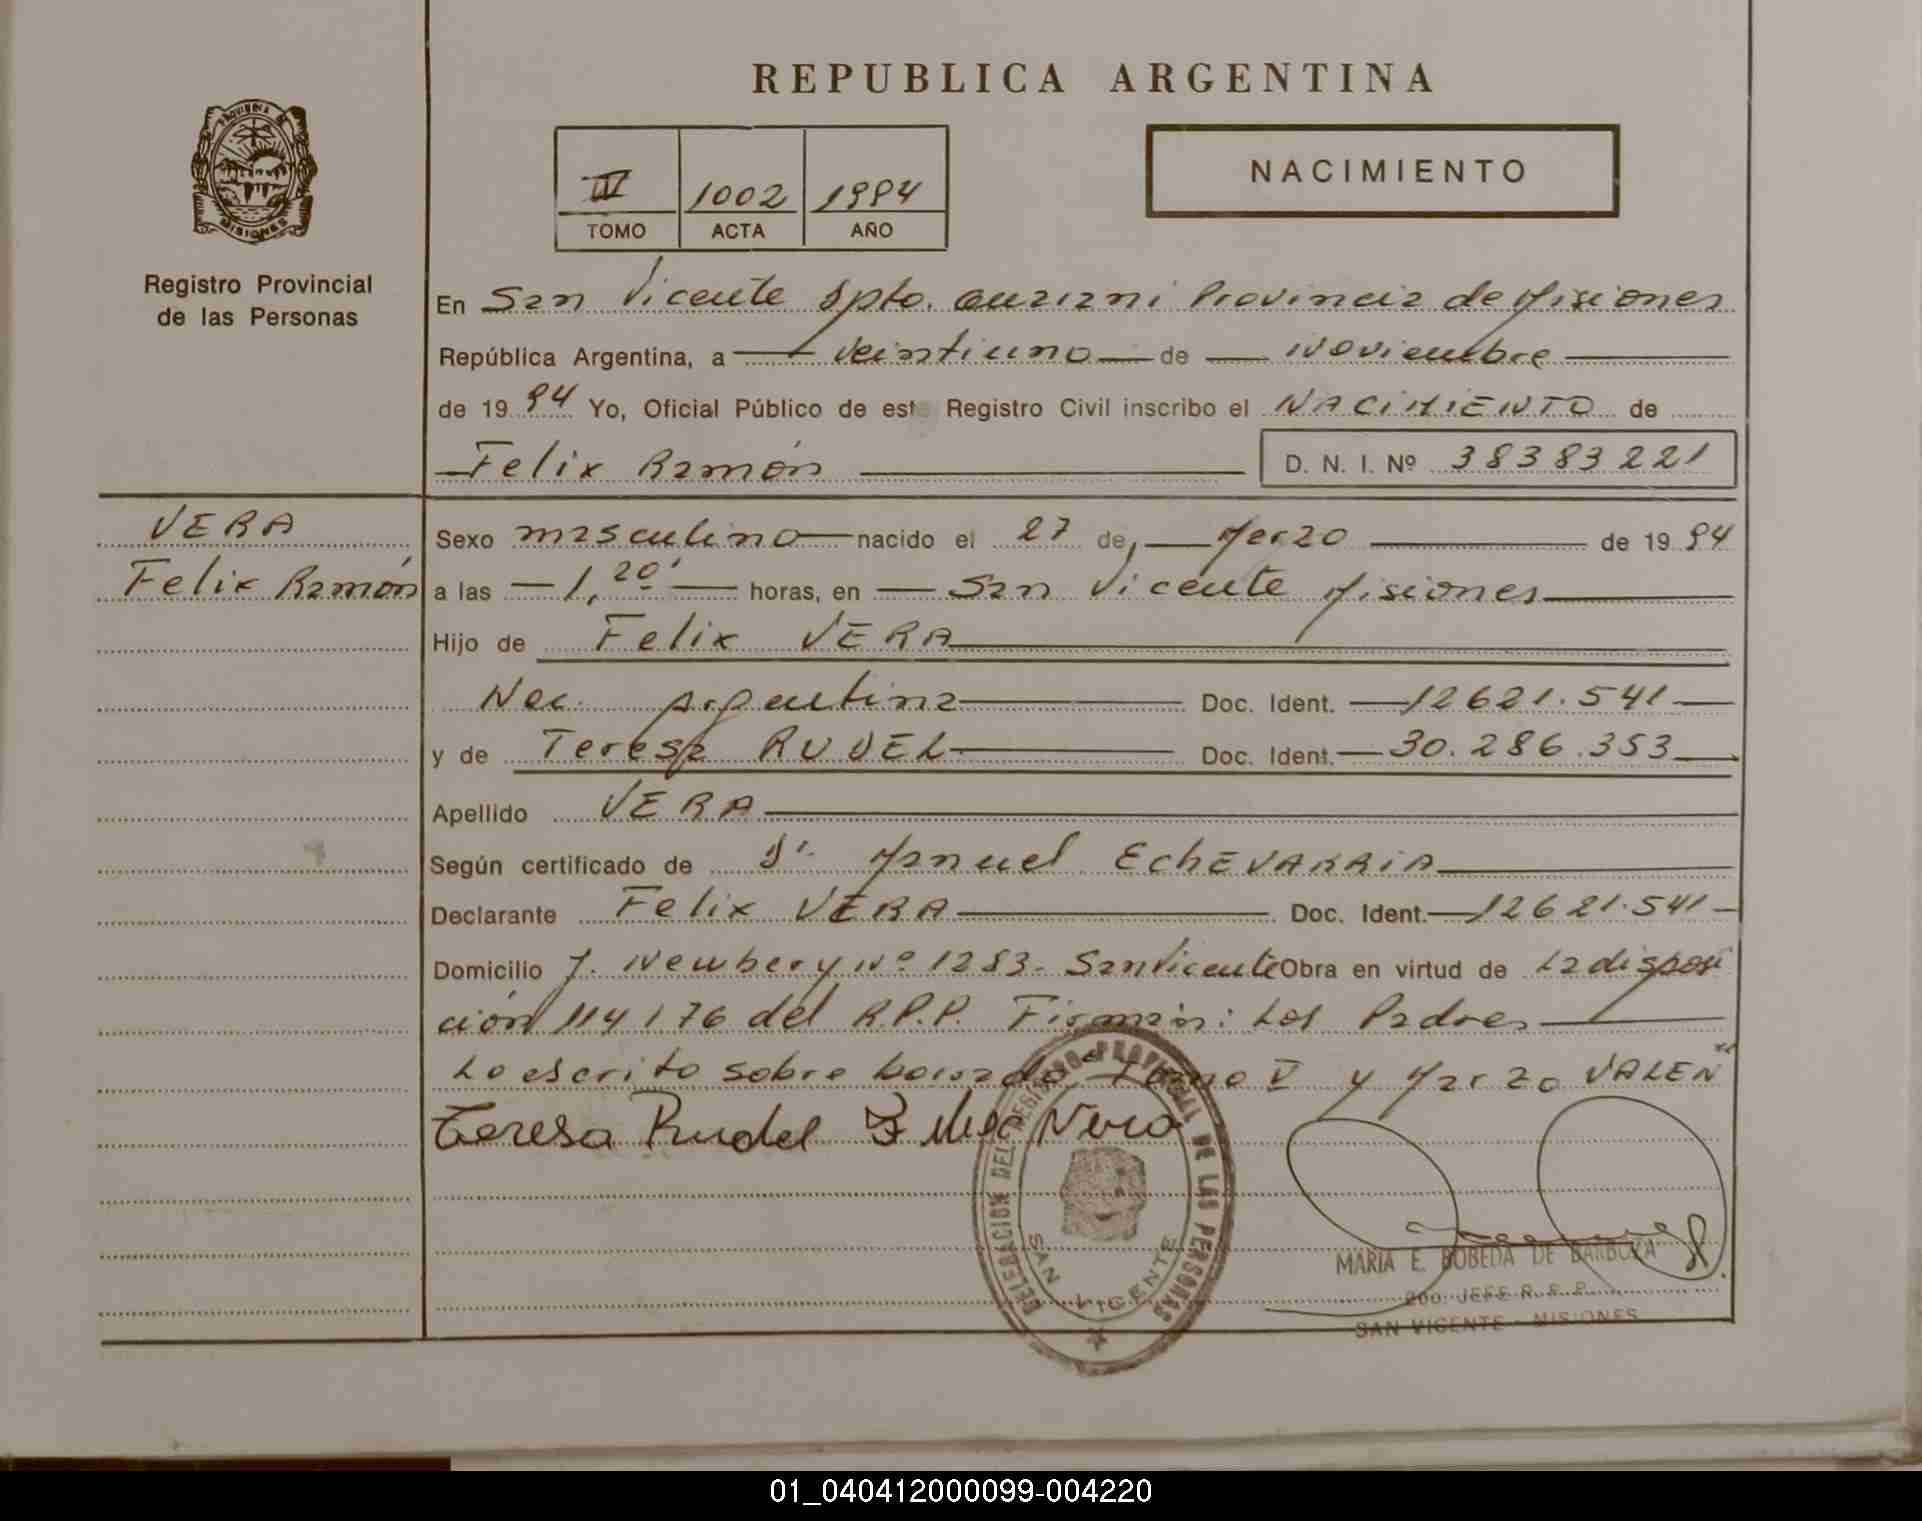 REPUBLICA ARGENTINA
PROVINCIA DE
MISIONES
Registro Provincial
de las Personas
1002 1994
TOMO ACTA AÑO
NACIMIENTO
En San Vicente Dpto. Guarani Provincia de Misiones
República Argentina, a veintiuno de Noviembre
de 19 94 Yo, Oficial Público de este Registro Civil inscribo el NACIMIENTO de
Felix Ramón D. N. I. Nº 38383221
VERA
Felix Ramón
Sexo masculino nacido el 27 de Marzo de 19 94
a las 1,20' horas, en San Vicente Misiones
Hijo de Felix VERA
Nac. Argentina Doc. Ident. 12621.541
y de Teresa RUDEL Doc. Ident. 30.286.353
Apellido VERA
Según certificado de Dr. Manuel EchEVARRiA
Declarante Felix VERA Doc. Ident. 12621.541
Domicilio J. Newbery Nº 1283- San Vicente Obra en virtud de La disposi
ción 114/76 del R.P.P. Firman: Los Padres
Lo escrito sobre borrado Tomo V y Marzo VALEN
Teresa Rudel Vera
DELEGACION DEL REGISTRO PROVINCIAL DE LAS PERSONAS
SAN VICENTE
MARIA E. BOBEDA DE BARBOZA
2do. JEFE R. P. P.
SAN VICENTE - MISIONES
01_040412000099-004220